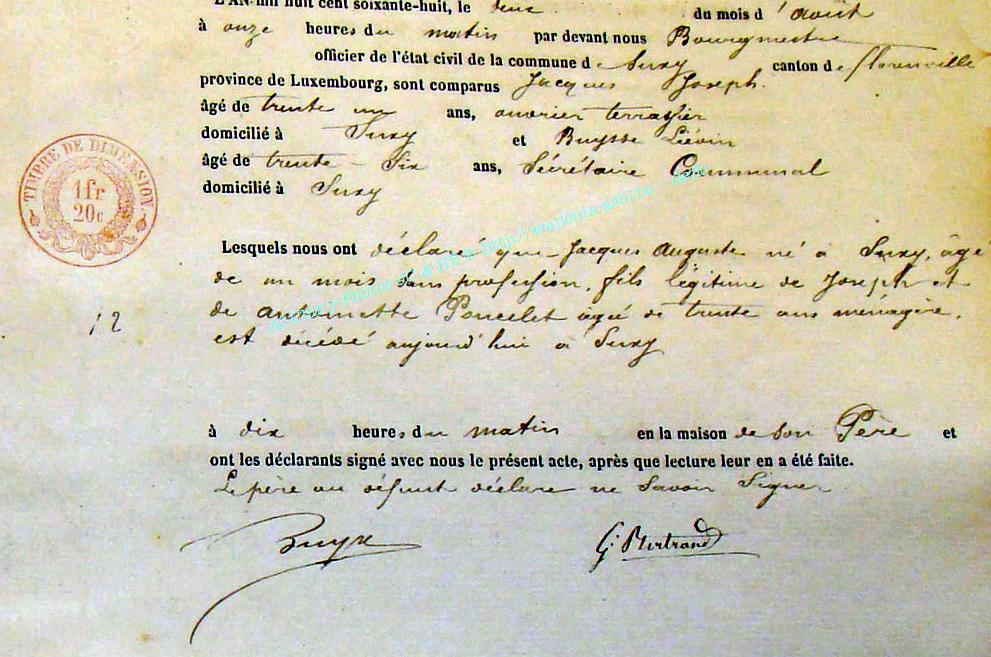 L'AN mil huit cent soixante-huit, le deux du mois d'août
à onze heures du matin par devant nous Bourgmestre
officier de l'état civil de la commune de Suxy canton de Florenville
province de Luxembourg, sont comparus Jacques Joseph.
âgé de trente un ans, ouvrier terrassier
domicilié à Suxy et Buysse Liévin
âgé de trente-Six ans, Sécrétaire Communal
domicilié à Suxy
TIMBRE DE DIMENSION.
1fr
20c
Lesquels nous ont déclaré que Jacques Auguste né à Suxy, âgé
de un mois sans profession, fils légitime de Joseph et
de Antoinette Poncelet agée de trente ans ménagère,
est décédé aujourd'hui à Suxy
12
à dix heures du matin en la maison de son Père et
ont les déclarants signé avec nous le présent acte, après que lecture leur en a été faite.
Le père du défunt déclare ne Savoir Signer
Buysse
G. Bertrand
http//wallonia-asbl.be